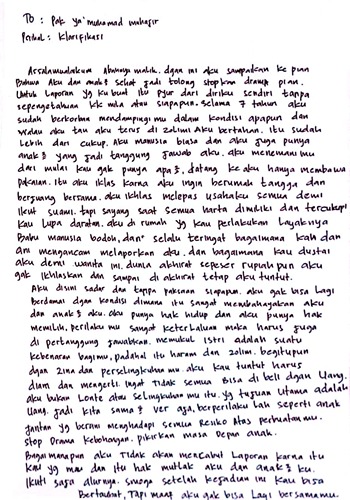 To : Pak Ya' muhamad muhajir
Perihal : Klarifikasi
Assalamualaikum Abangnya malik. dgan ini aku sampaikan ke pian
Bahwa Aku dan anak² sehat jadi tolong stopkan drama pian.
Untuk Laporan yg ku buat itu pyur dari diriku sendiri tanpa
sepengetahuan kk mila atau siapapun. Selama 7 tahun aku
sudah berkorban mendampingi mu dalam kondisi apapun dan
walau aku tau aku terus di zolimi Aku bertahan. itu sudah
Lebih dari cukup. Aku manusia biasa dan aku juga punya
anak² yang jadi tanggung jawab aku. aku menemani mu
dari mulai kau gak punya apa², datang ke aku hanya membawa
pakaian. Itu aku iklas karna aku ingin berumah tangga dan
berjuang bersama. aku ikhlas melepas usahaku semua demi
ikut suami. tapi sayang saat semua harta dimiliki dan tercukupi
kau lupa daratan. aku di rumah yg kau perlakukan Layaknya
Babu manusia bodoh, dan selalu teringat bagaimana kah dan
am mengancam melaporkan aku. dan bagaimana kau dustai
aku demi wanita ini. dunia akhirat sepeser rupiah pun aku
gak ikhlaskan dan sampai di akhirat tetap aku tuntut.
Aku disini sadar dan tanpa paksaan siapapun. aku gak bisa Lagi
Berdamai dgan kondisi dimana itu sangat membahayakan aku
dan anak² aku. aku punya hak hidup dan aku punya hak
memilih, perilaku mu sangat keterlaluan maka harus juga
di pertanggung jawabkan. memukul istri adalah suatu
kebenaran bagimu, padahal itu haram dan zolim. begitupun
dgan zina dan perselingkuhan mu. aku kau tuntut harus
diam dan mengerti. ingat tidak semua bisa di beli dgan Uang.
aku bukan Lonte atau selingkuhan mu itu. yg tujuan utama adalah
Uang. jadi kita sama² ver aja, berperilaku Lah seperti anak
jantan yg berani menghadapi semua Resiko Atas perbuatan mu.
stop Drama kebohongan. pikirkan masa Depan anak.
Bagaimanapun aku Tidak akan mencabut Laporan karna itu
kau yg mau dan itu hak mutlak aku dan anak² ku.
ikuti saja alurnya. semoga setelah kejadian ini kau bisa
Bertaubat, Tapi maaf aku gak bisa Lagi bersamamu.